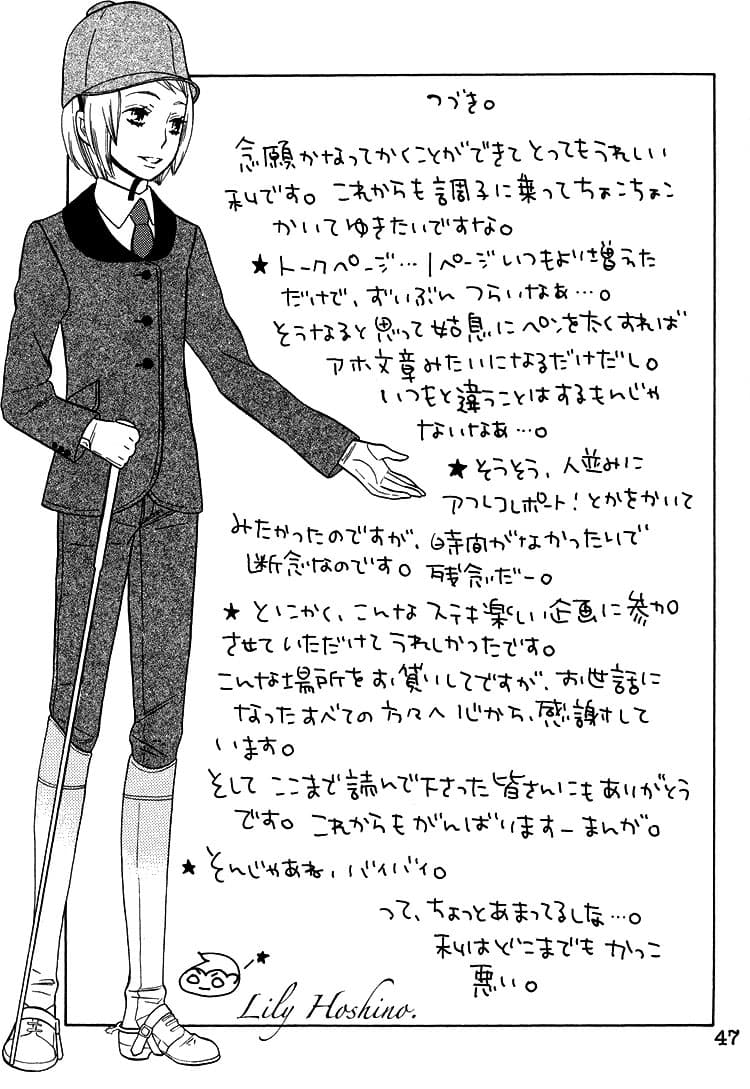 つづき。
念願かなってかくことができてとってもうれしい
私です。これからも調子に乗ってちょこちょこ
かいてゆきたいですな。
★トークページ…1ページいつもより増えた
だけで、ずいぶんつらいなぁ…。
そうなると思って姑息にペンを太くすれば
アホ文章みたいになるだけだし。
いつもと違うことはするもんじゃ
ないなぁ…。
★そうそう、人並みに
アフレコレポート!とかをかいて
みたかったのですが、時間がなかったいで
断念なのです。残念だー。
★とにかく、こんなステキ楽しい企画に参加
させていただけてうれしかったです。
こんな場所をお貸いしてですが、お世話に
なったすべての方々へ心から、感謝して
います。
そしてここまで読んで下さった皆さんにもありがとう
です。これからもがんばりますーまんが。
★そんじゃあね、バイバイ。
って、ちょっとあまってるしな…。
私はどこまでもかっこ
悪い。
Lily Hoshino.
47